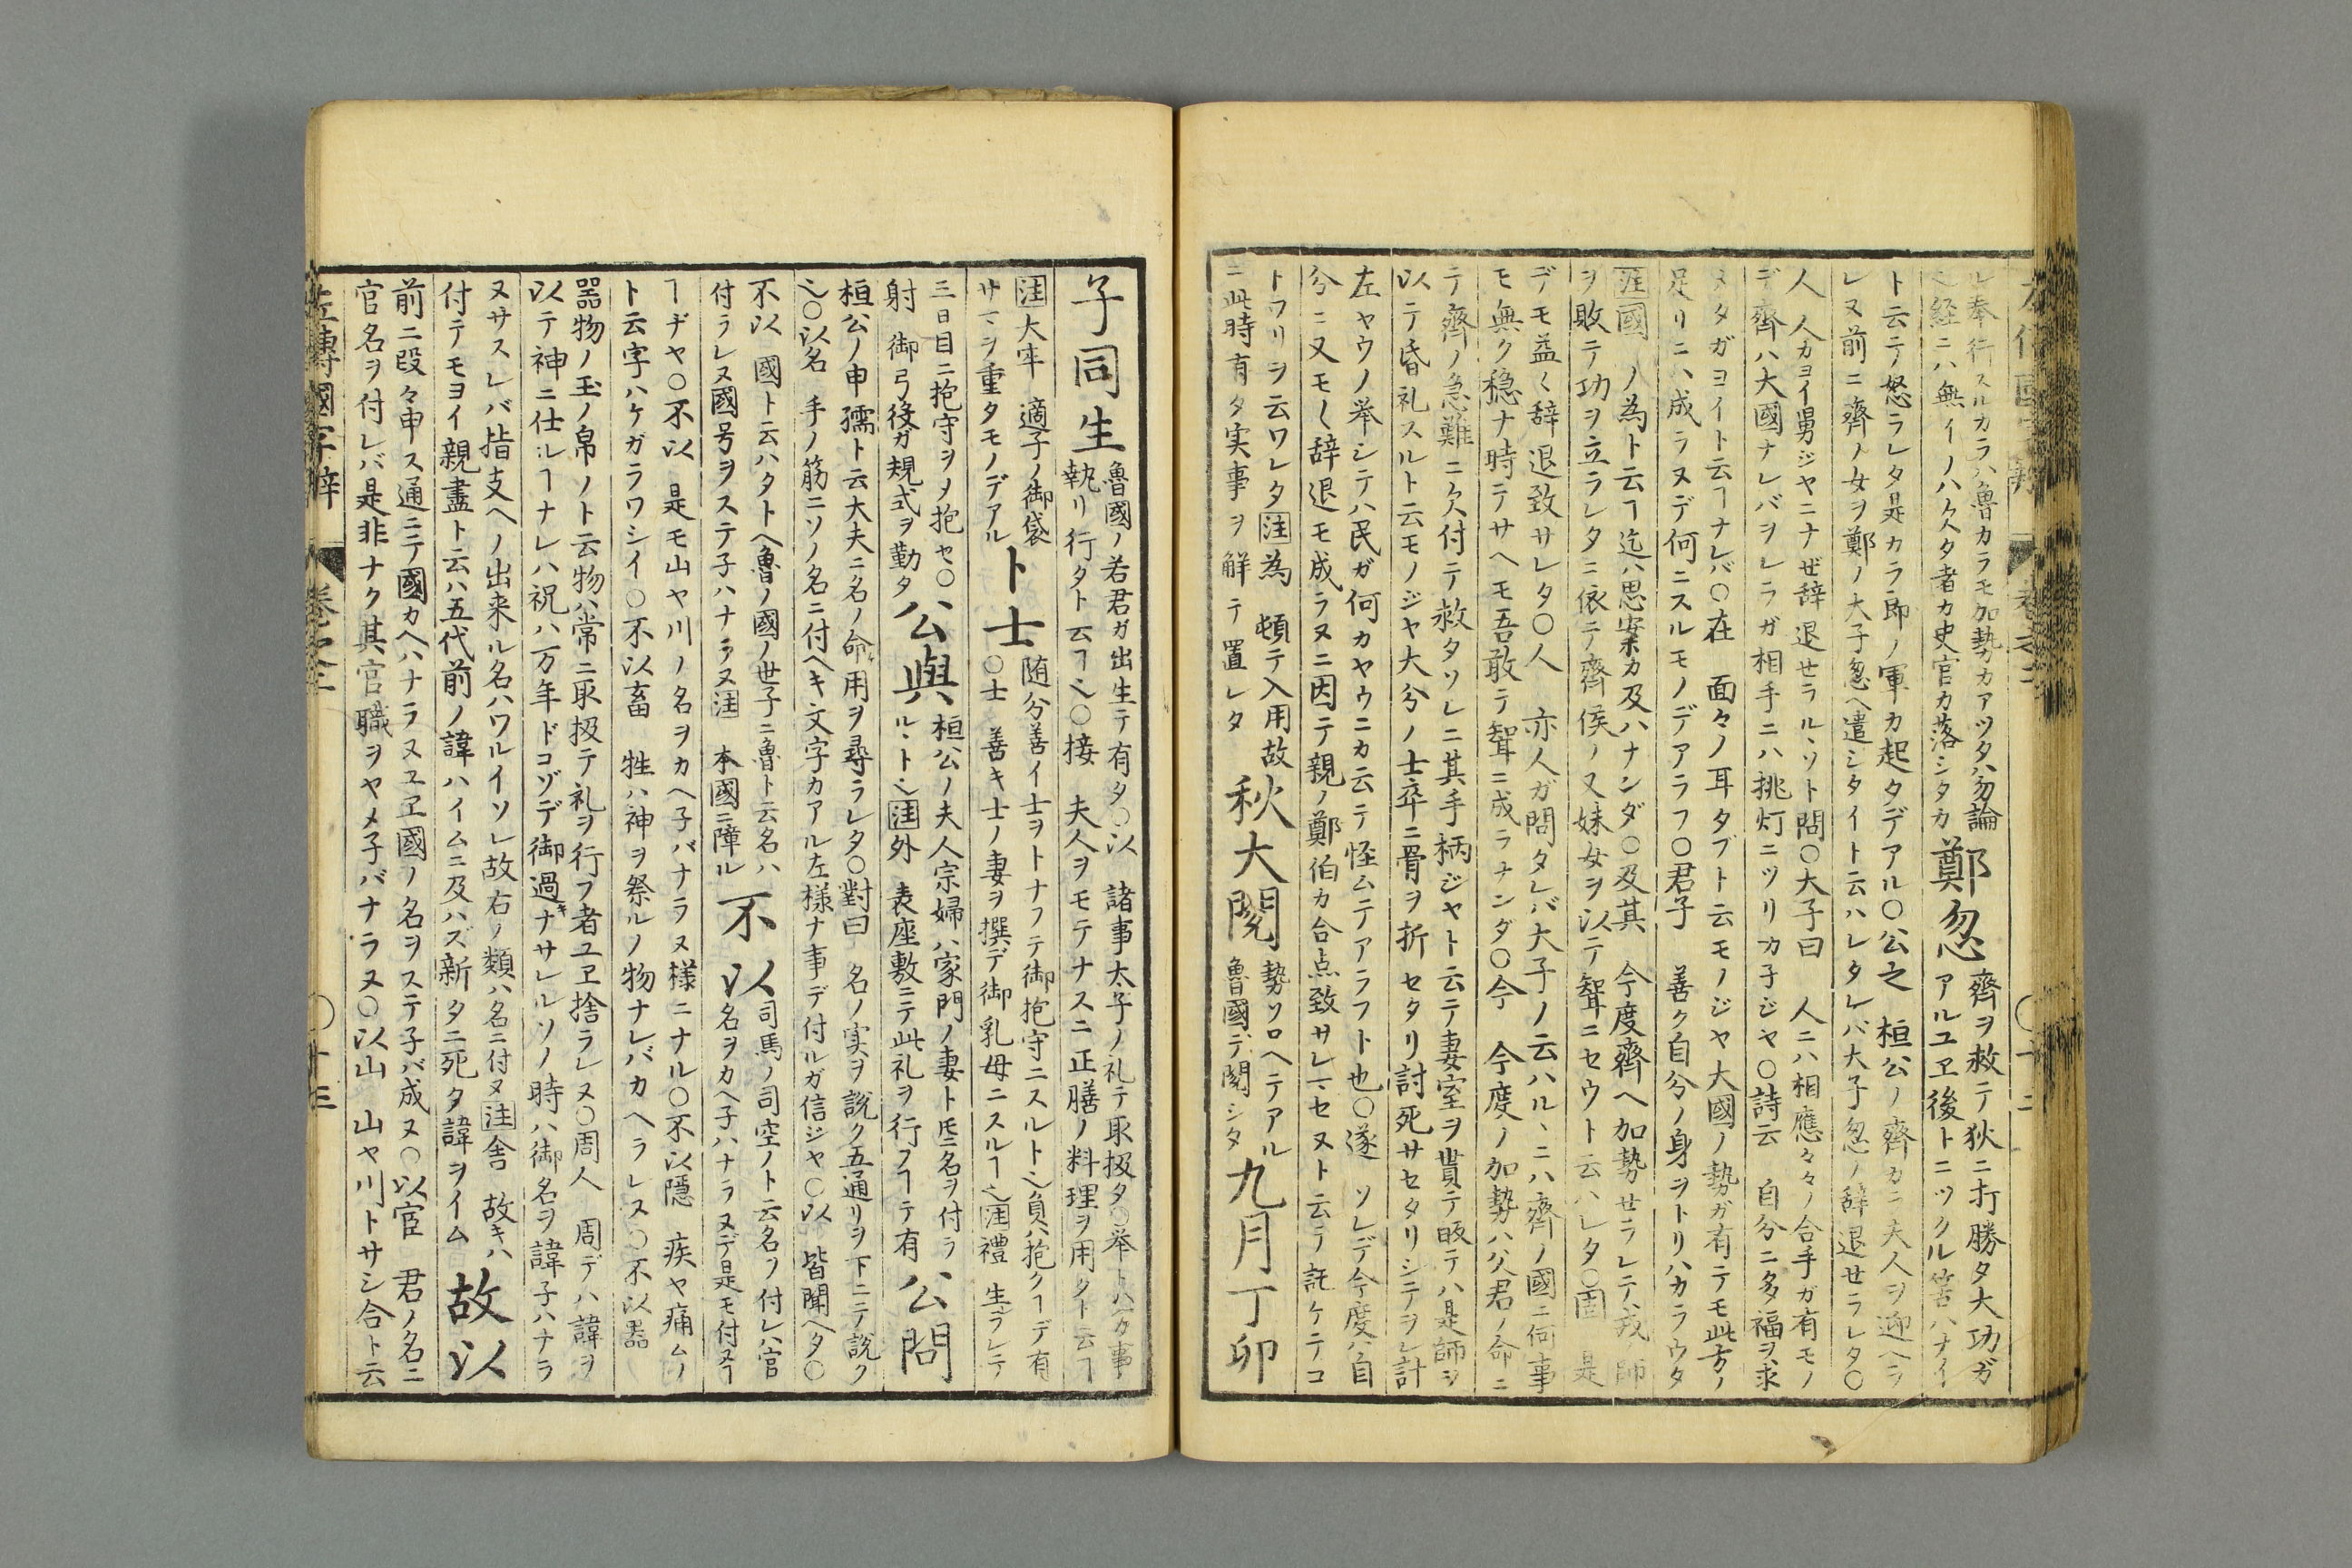 ル奉行スルカラハ魯カラモ加勢カアツタハ勿論
経ニハ無イノハ欠タ者カ史官カ落シタカ
鄭忽
齊ヲ救テ狄ニ打勝タ大功ガ
アルユヱ後トニツクル筈ハナイ
ト云テノ怒ラレタ是カラ郎ノ軍カ起タデアル〇公之 桓公ノ齊カニ夫人ヲ迎ヘラ
レヌ前ニ齊ノ女ヲ鄭ノ大子忽ヘ遣シタイト云ハレタレバ大子忽ノ辞退せラレタ〇
人 人カヨイ男ジヤニナぜ辞退せラル丶ソト問〇大子曰 人ニハ相應々々ノ合手ガ有モノ
デ齊ハ大國ナレバヲレラガ相手ニハ挑灯ニツリカ子ジヤ〇詩云 自分ニ多福ヲ求
ヌタガヨイト云ヿナレバ〇在 面々ノ耳タブト云モノジヤ大國ノ勢ガ有テモ此方ノ
足リニハ成ラヌデ何ニスルモノデアラフ〇君子 善ク自分ノ身ヲトリハカラウタ
注國 ノ為ト云ヿ迄ハ思案カ及ハナンダ〇及其 今度齊ヘ加勢せラレテ戎ノ師
ヲ敗テ功ヲ立ラレタニ依テ齊侯ノ又妹女ヲ以テ聟ニセウト云ハレタ〇固 是
デモ益〱辞退致サレタ〇人 亦人ガ問タレバ大子ノ云ハル丶ニハ齊ノ國ニ何事
モ無ク穏ナ時ニテサヘモ吾敢テ聟ニ成ラナンダ〇今 今度ノ加勢ハ父君ノ命ニ
テ齊ノ急難ニ欠付テ救タソレニ其手柄ジヤト云テ妻室ヲ貰テ皈テハ是師ヲ
以テ昏礼スルト云モノジヤ大分ノ士卒ニ骨ヲ折セタリ討死サセタリシテヲレ計
左ヤウノ挙シテハ民ガ何カヤウニカ云テ怪ムテアラフト也〇遂 ソレデ今度ハ自
分ニ又モ〱辞退モ成ラヌニ因テ親ノ鄭伯カ合点致サレマセヌト云ラ託ケテコ
トワリヲ云ワレタ注為 頓テ入用故
ニ此時有タ実事ヲ解テ置レタ
秋大閱
勢ソロヘテアル
魯國デ閱シタ
九月丁卯
子同生
魯國ノ若君ガ出生テ有タ〇以 諸事太子ノ礼テ取扱タ〇挙トハカ事
執リ行タト云ヿ〇接 夫人ヲモテナスニ正膳ノ料理ヲ用タト云ヿ
注大牢 適子ノ御袋
サマヲ重タモノデアル
卜士
随分善イ士ヲトナフテ御抱守ニスルト負ハ抱クヿデ有
〇士 善キ士ノ妻ヲ撰デ御乳母ニスルヿ注禮 生ラレテ
三日目ニ抱守ヲメ抱セ〇
射 御弓役ガ規式ヲ勤タ
公與
桓公ノ夫人宗婦ハ家門ノ妻トモニ名ヲ付ラ
ル丶ト注外 表座敷ニテ此礼ヲ行フヿテ有
公問
桓公ノ申孺ト云大夫ニ名ノ命用ヲ尋ラレタ〇對曰 名ノ実ヲ説ク五通リヲ下ニテノ説ク
〇以名 手ノ筋ニソノ名ニ付ヘキ文字カアル左様ナ事デ付ルガ信ジヤ〇以 皆聞ヘタ〇
不以 國ト云ハタトヘ魯ノ國ノ世子ニ魯ト云名ハ
付ラレヌ國号ヲステ子ハナラヌ注 本國ニ障ル
不以
司馬ノ司空ノト云名ヲ付レハ官
名ヲカヘ子ハナラヌデ是モ付ヌヿ
ヿヂヤ〇不以 是モ山ヤ川ノ名ヲカヘ子バナラヌ様ニナル〇不以隠 疾ヤ痛ムノ
ト云字ハケガラワシイ〇不以畜 牲ハ神ヲ祭ルノ物ナレバカヘラレヌ〇不以器
器物ノ玉ノ帛ノト云物ハ常ニ取扱テ礼ヲ行フ者ユヱ捨ラレヌ〇周人 周デハ諱ヲ
以テ神ニ仕ルヿナレハ祝ハ万年ドコゾデ御過キナサレルソノ時ハ御名ヲ諱子ハナラ
ヌサスレバ指支ヘノ出来ル名ハワルイソレ故右ノ類ハ名ニ付ヌ注舎 故キハ
付テモヨイ親盡ト云ハ五代前ノ諱ハイムニ及ハズ新タニ死タ諱ヲイム
故以
前ニ段々申ス通ニテ國カヘハナラヌユヱ國ノ名ヲステ子バ成ヌ〇以官 君ノ名ニ
官名ヲ付レバ是非ナク其官職ヲヤメ子バナラヌ〇以山 山ヤ川トサシ合ト云
左傳國字辯 卷之三 〇十三